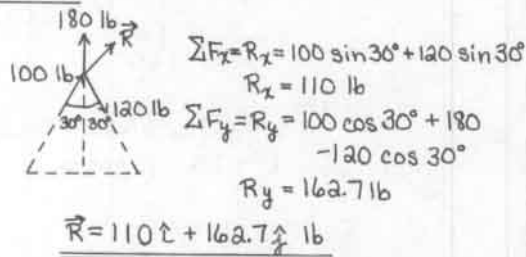 180 lb
R⃗
100 lb
120 lb
30° 30°
ΣFx=Rx=100 sin30°+120 sin30°
Rx=110 lb
ΣFy=Ry=100 cos30°+180
-120 cos30°
Ry=162.7 lb
R⃗=110 î+162.7 ĵ lb